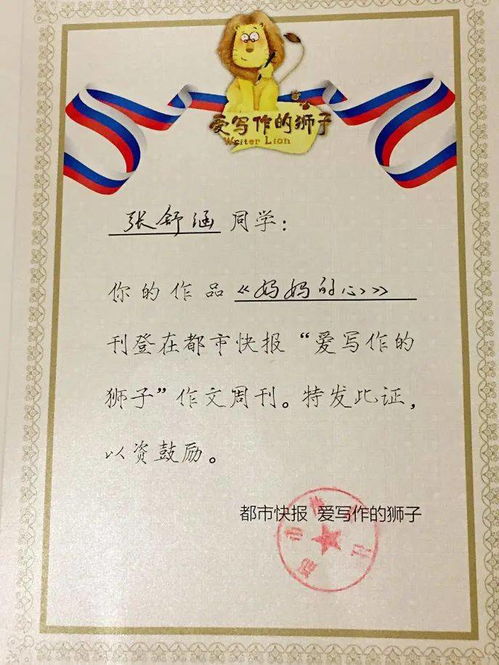 爱写作的狮子
Writer Lion
张舒涵 同学:
你的作品《妈妈的心》
刊登在都市快报“爱写作的
狮子”作文周刊。特发此证,
以资鼓励。
都市快报 爱写作的狮子